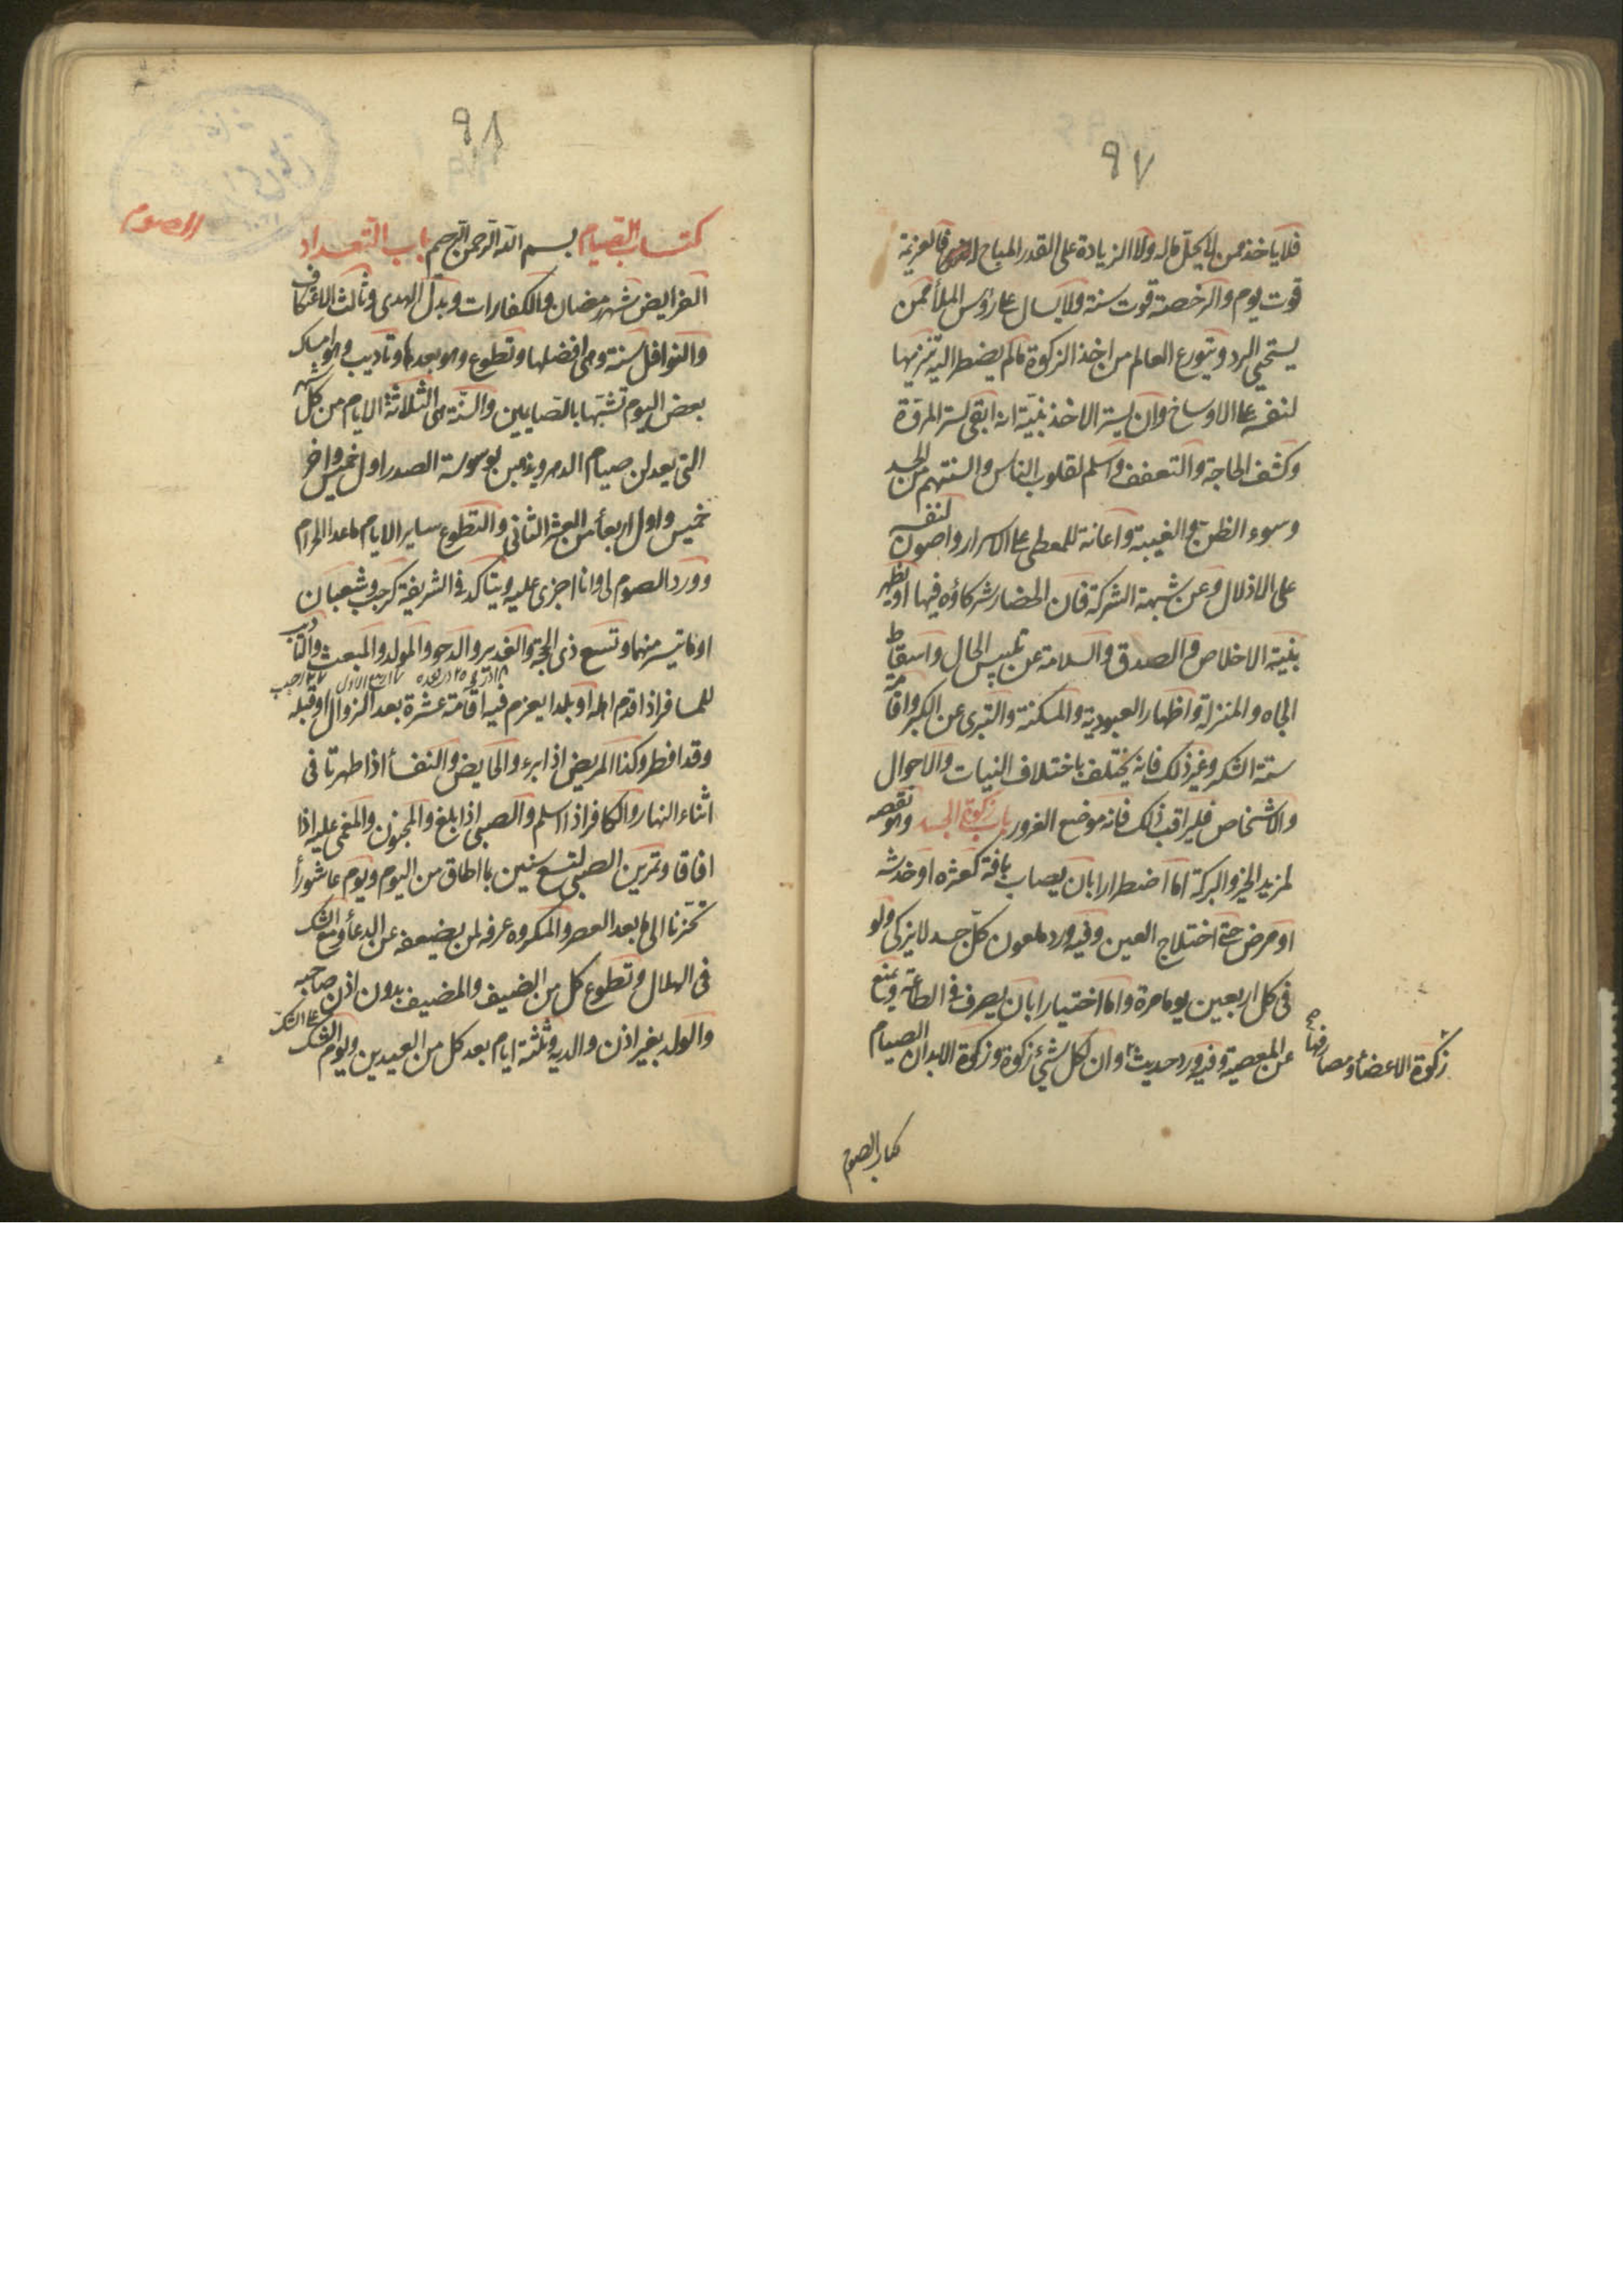 ٩٧
فلا ياخذ ممن لا يحلّ ماله ولا الزيادة على القدر المباح فالعزيمة
قوت يوم والرخصة قوت سنة ولا يسال على رؤس الملأ ممن
يستحيى الرد ويتورع العالم من اخذ الزكوة مالم يضطر اليه تنزيها
لنفسه عن الاوساخ وان يستر الاخذ بنيّة انه ابقى لستر المروّة
وكشف الحاجة والتعفف واسلم لقلوب الناس والسنتهم من الحسد
وسوء الظن والغيبة واعانة للمعطى على الاسرار واصون لنفسه
على الاذلال وعن شبهة الشركة فان الحضار شركاؤه فيها او يظهر
بنية الاخلاص والصدق والسلامة عن تلبيس الحال واسقاط
الجاه والمنزلة واظهار العبودية والمسكنة والتبرى عن الكبر واقامة
سنة الشكر وغير ذلك فانه يختلف باختلاف النيات والاحوال
والاشخاص فليراقب ذلك فانه موضع الغرور باب زكوة الجسد وهو نقصه
لمزيد الخير والبركة اما اضطرارا بان يصاب بافة كعثره او خدشه
او مرض حتى اختلاج العين وفيه ورد ملعون كلّ جسد لا يزكى ولو
فى كل اربعين يوما مرة واما اختيارا بان يصرف فى الطاعة ويمنع
عن المعصية وفيه ورد حديث وان لكل شئ زكوة وزكوة الابدان الصيام
زكوة الاعضأ ومصارفها
كتاب الصوم
٩٨
الصوم
كتاب الصيام بسم الله الرحمن الرحيم باب التعداد
الفرايض شهر رمضان والكفارات وبدل الهدى وثالث الاعتكاف
والنوافل سنة وهى افضلها وتطوع وهو بعدها وتاديب وهو امساك
بعض اليوم تشبّها بالصّايمين والسّنّة هى الثلاثة الايام من كل شهر
التى يعدلن صيام الدهر ويذهبن بوسوسة الصدر اول خميس واخر
خميس واول اربعأ من العشر الثانى والتطوع ساير الايام ماعدا الحرام
وورد الصوم لى وانا اجزى عليه ويتاكد فى الشريفة كرجب وشعبان
او ما تيسر منهما وتسع ذى الحجة والغدير والدحو والمولد والمبعث والتاديب
للمسافر اذا قدم اهله او بلدا يعزم فيه اقامة عشرة بعد الزوال او قبله
وقد افطر وكذا المريض اذا برء والحايض والنفسأ اذا طهرتا فى
اثناء النهار والكافر اذا اسلم والصبى اذا بلغ والمجنون والمغمى عليه اذا
افاقا وتمرين الصبى لتسع سنين بما اطاق من اليوم ويوم عاشورأ
تحزنا الى ما بعد العصر والمكروه عرفه لمن يضعفه عن الدعأ او مع الشك
فى الهلال وتطوع كل من الضيف والمضيف بدون اذن صاحبه
والولد بغير اذن والديه وثلثة ايام بعد كل من العيدين ويوم الشك